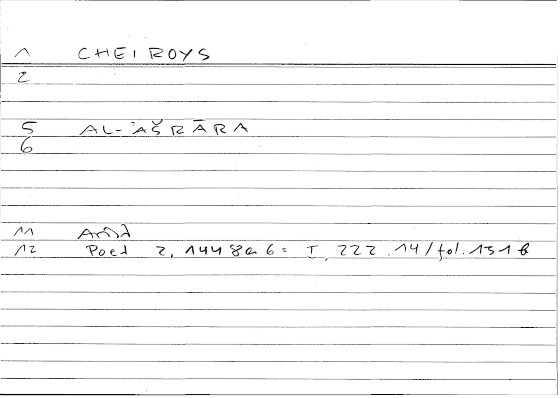 1 CHEIROYS
2
5 AL-'AŠRĀRA
6
11 Arist
12 Poet 2, 1448a6 = I, 222.14/fol.131b